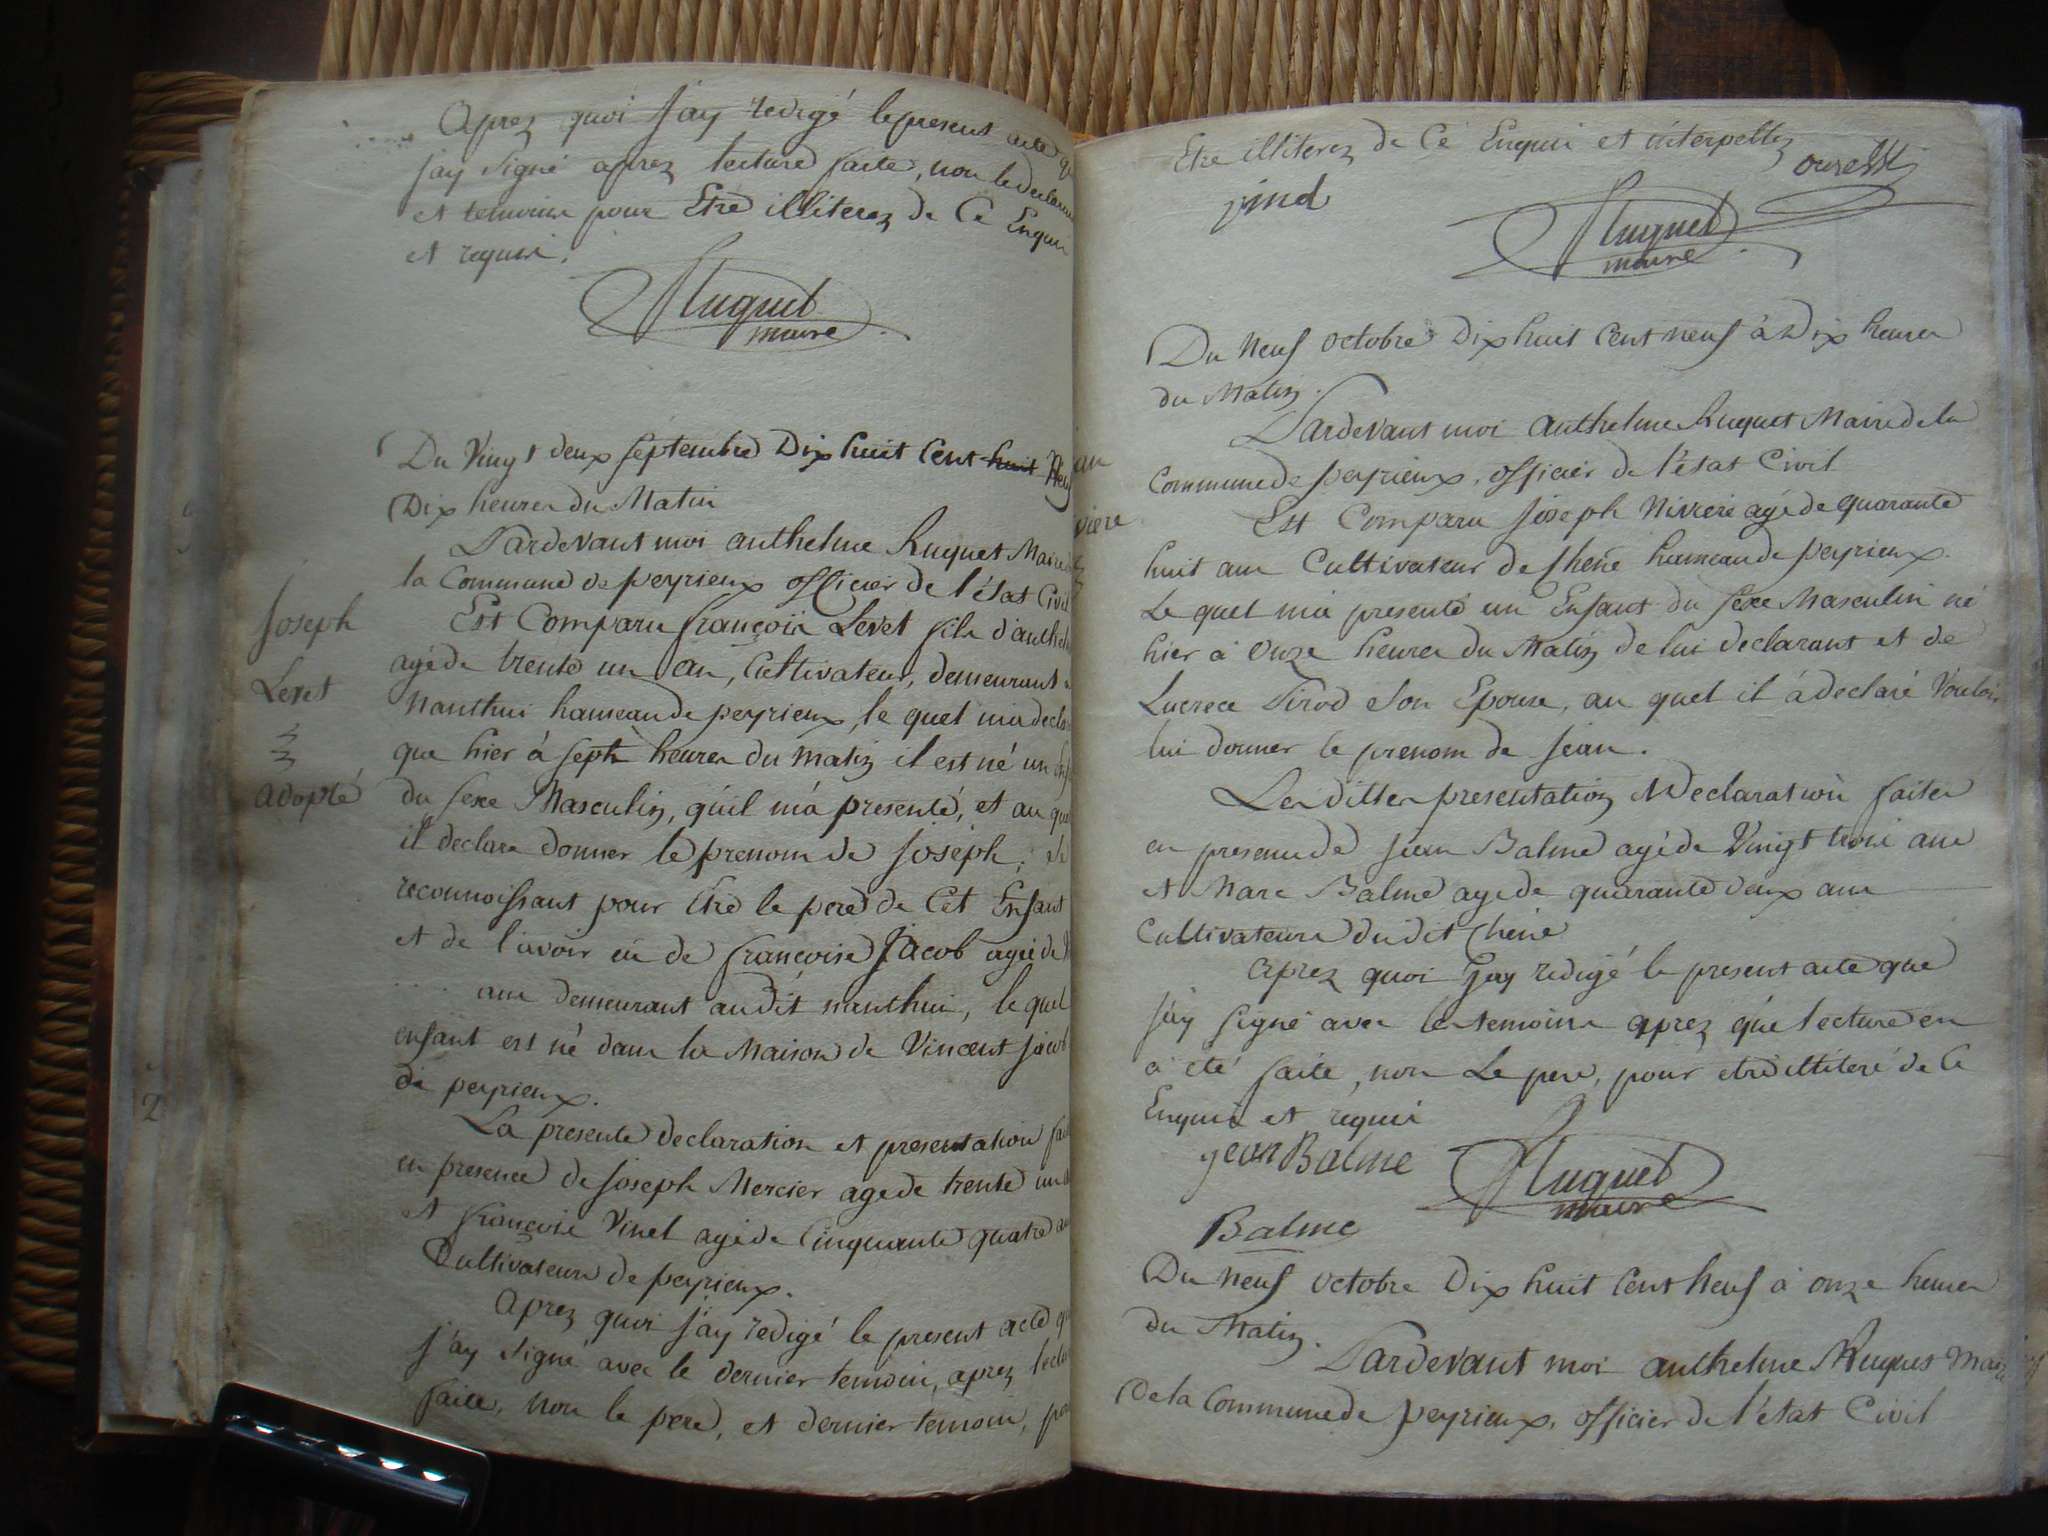 Aprez quoi J'ay redigé le present acte
j'ay signé aprez lecture faite, non le declarant
et temoins pour Etre illiterez de Ce Enquis
et requis.
Ruquet
maire
Du Vingt deux septembre Dix huit Cent huit Neuf
Dix heures du Matin
Pardevant moi anthelme Ruquet Maire
la Commune de peyrieux officier de l'état Civil
Joseph
Levet
adopté
Est Comparu françois Levet fils d'anthel
agé de trente un an, Cultivateur, demeurant
Nanthui hameau de peyrieux, le quel m'a decla
que hier à sept heures du matin il est né un
du sexe Masculin, qu'il m'a presenté, et au
il declare donner le prenom de joseph, se
reconnoissant pour Etre le pere de Cet Enfant
et de l'avoir eü de françoise Jacob agée de
.... ans demeurant audit nanthui, le quel
enfant est né dans la Maison de Vincent jacob
de peyrieux.
La presente declaration et presentation
en presence de joseph Mercier agé de trente un
et françois Vinet agé de Cinquante quatre
Cultivateurs de peyrieux.
Aprez quoi j'ay redigé le present acte
j'ay signé avec le dernier temoin, aprez
faite, non le pere, et dernier temoin,
2
Etre illiterez de Ce Enquis et interpellez
Ruquet
maire
Du Neuf octobre Dix huit Cent neuf à Dix heures
du Matin.
Pardevant moi anthelme Ruquet Maire de la
Commune de peyrieux, officier de l'état Civil
Est Comparu joseph Nivierè agé de quarante
huit ans Cultivateur de Chêne hameau de peyrieux.
Le quel m'a presenté un Enfant du sexe Masculin né
hier à Onze heures du Matin de lui declarant et de
Lucrece Sirod son Epouse, au quel il à declaré Vouloir
lui donner le prenom de jean.
Les dittes presentation & Declaration faites
en presence de jean Balme agé de Vingt trois ans
et Marc Balme agé de quarante deux ans
Cultivateurs dudit Chêne
Aprez quoi J'ay redigé le present acte que
j'ay signé avec les temoins aprez que lecture en
a été faite, non Le pere, pour etre illiteré de Ce
Enquis et requis
jean Balme
Ruquet
maire
Balme
Du neuf octobre Dix huit Cent Neuf à onze heures
du Matin.
Pardevant moi anthelme Ruquet Maire
De la Commune de peyrieux, officier de l'état Civil